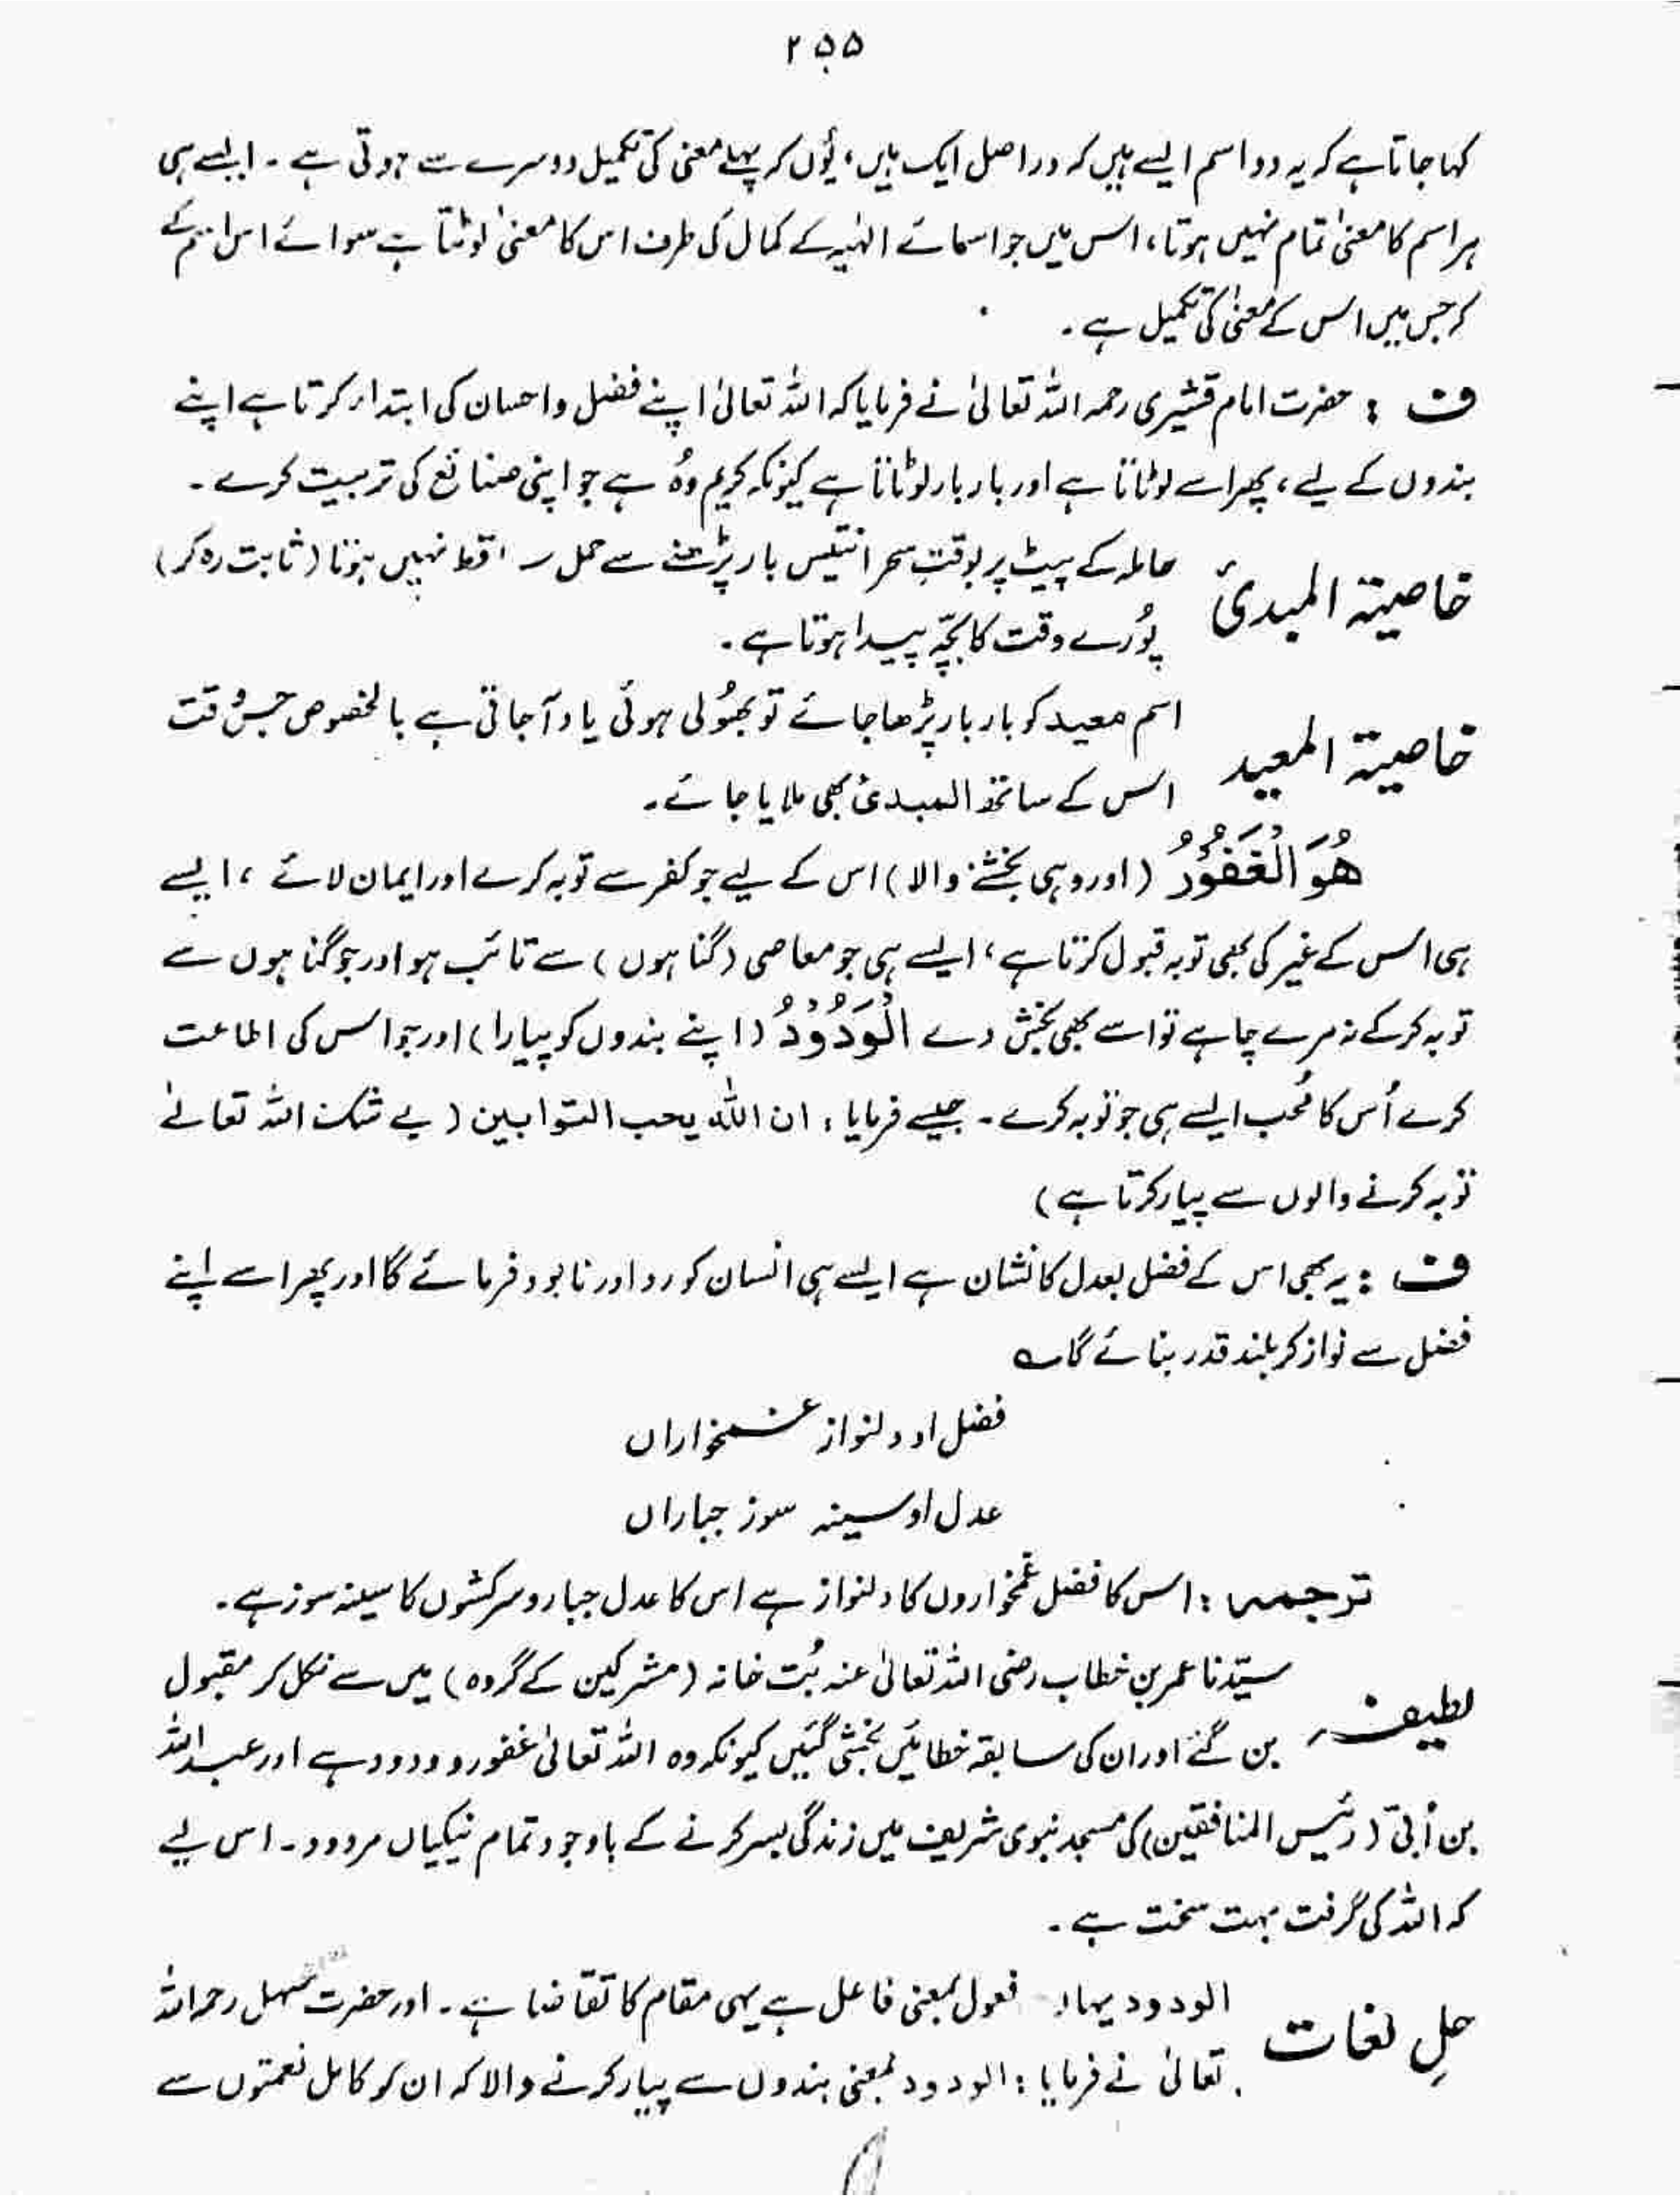 ۲۵۵
کہا جاتا ہے کہ یہ دو اسم ایسے ہیں کہ دراصل ایک ہیں، یُوں کہ پہلے معنی کی تکمیل دوسرے سے ہوتی ہے ۔ ایسے ہی
ہر اسم کا معنیٰ تمام نہیں ہوتا، اس میں جو اسمائے الٰہیہ کے کمال کی طرف اس کا معنیٰ لوٹتا ہے سوائے اس اسم کے
کہ جس میں اس کے معنیٰ کی تکمیل ہے ۔
ف : حضرت امام قشیری رحمہ اللہ تعالیٰ نے فرمایا کہ اللہ تعالیٰ اپنے فضل و احسان کی ابتداء کرتا ہے اپنے
بندوں کے لیے، پھر اسے لوٹاتا ہے اور بار بار لوٹاتا ہے کیونکہ کریم وُہ ہے جو اپنی صنائع کی تربیت کرے ۔
خاصیۃ المبدئ حاملہ کے پیٹ پر بوقتِ سحر انتیس بار پڑھنے سے حمل ساقط نہیں ہوتا (ثابت رہ کر)
پُورے وقت کا بچّہ پیدا ہوتا ہے ۔
خاصیۃ المعید اسم معید کو بار بار پڑھا جائے تو بھُولی ہوئی یاد آ جاتی ہے بالخصوص جس وقت
اس کے ساتھ المبدئ بھی ملایا جائے ۔
هُوَ الْغَفُوْرُ (اور وہی بخشنے والا) اس کے لیے جو کفر سے توبہ کرے اور ایمان لائے ، ایسے
ہی اس کے غیر کی بھی توبہ قبول کرتا ہے، ایسے ہی جو معاصی (گناہوں) سے تائب ہو اور جو گناہوں سے
توبہ کر کے نہ مرے چاہے تو اسے بھی بخش دے الْوَدُوْدُ (اپنے بندوں کو پیارا) اور جو اس کی اطاعت
کرے اُس کا مُحب ایسے ہی جو توبہ کرے ۔ جیسے فرمایا : ان اللہ یحب التوابین (بے شک اللہ تعالیٰ
توبہ کرنے والوں سے پیار کرتا ہے)
ف : یہ بھی اس کے فضل بعدل کا نشان ہے ایسے ہی انسان کو رد اور نابود فرمائے گا اور پھر اسے اپنے
فضل سے نواز کر بلند قدر بنائے گا ؎
فضل او دلنواز غمخواراں
عدل او سینہ سوز جباراں
ترجمہ : اس کا فضل غمخواروں کا دلنواز ہے اس کا عدل جبار و سرکشوں کا سینہ سوز ہے ۔
لطیفہ سیّدنا عمر بن خطاب رضی اللہ تعالیٰ عنہ بُت خانہ (مشرکین کے گروہ) میں سے نکل کر مقبول
بن گئے اور ان کی سابقہ خطائیں بخشی گئیں کیونکہ وہ اللہ تعالیٰ غفور و ودود ہے اور عبد اللہ
بن اُبیّ (رئیس المنافقین) کی مسجد نبوی شریف میں زندگی بسر کرنے کے باوجود تمام نیکیاں مردود ۔ اس لیے
کہ اللہ کی گرفت بہت سخت ہے ۔
حلِ لغات الودود یہاں فعول بمعنی فاعل ہے یہی مقام کا تقاضا ہے ۔ اور حضرت سہل رحمہ اللہ
تعالیٰ نے فرمایا : الودود بمعنی بندوں سے پیار کرنے والا کہ ان کو کامل نعمتوں سے